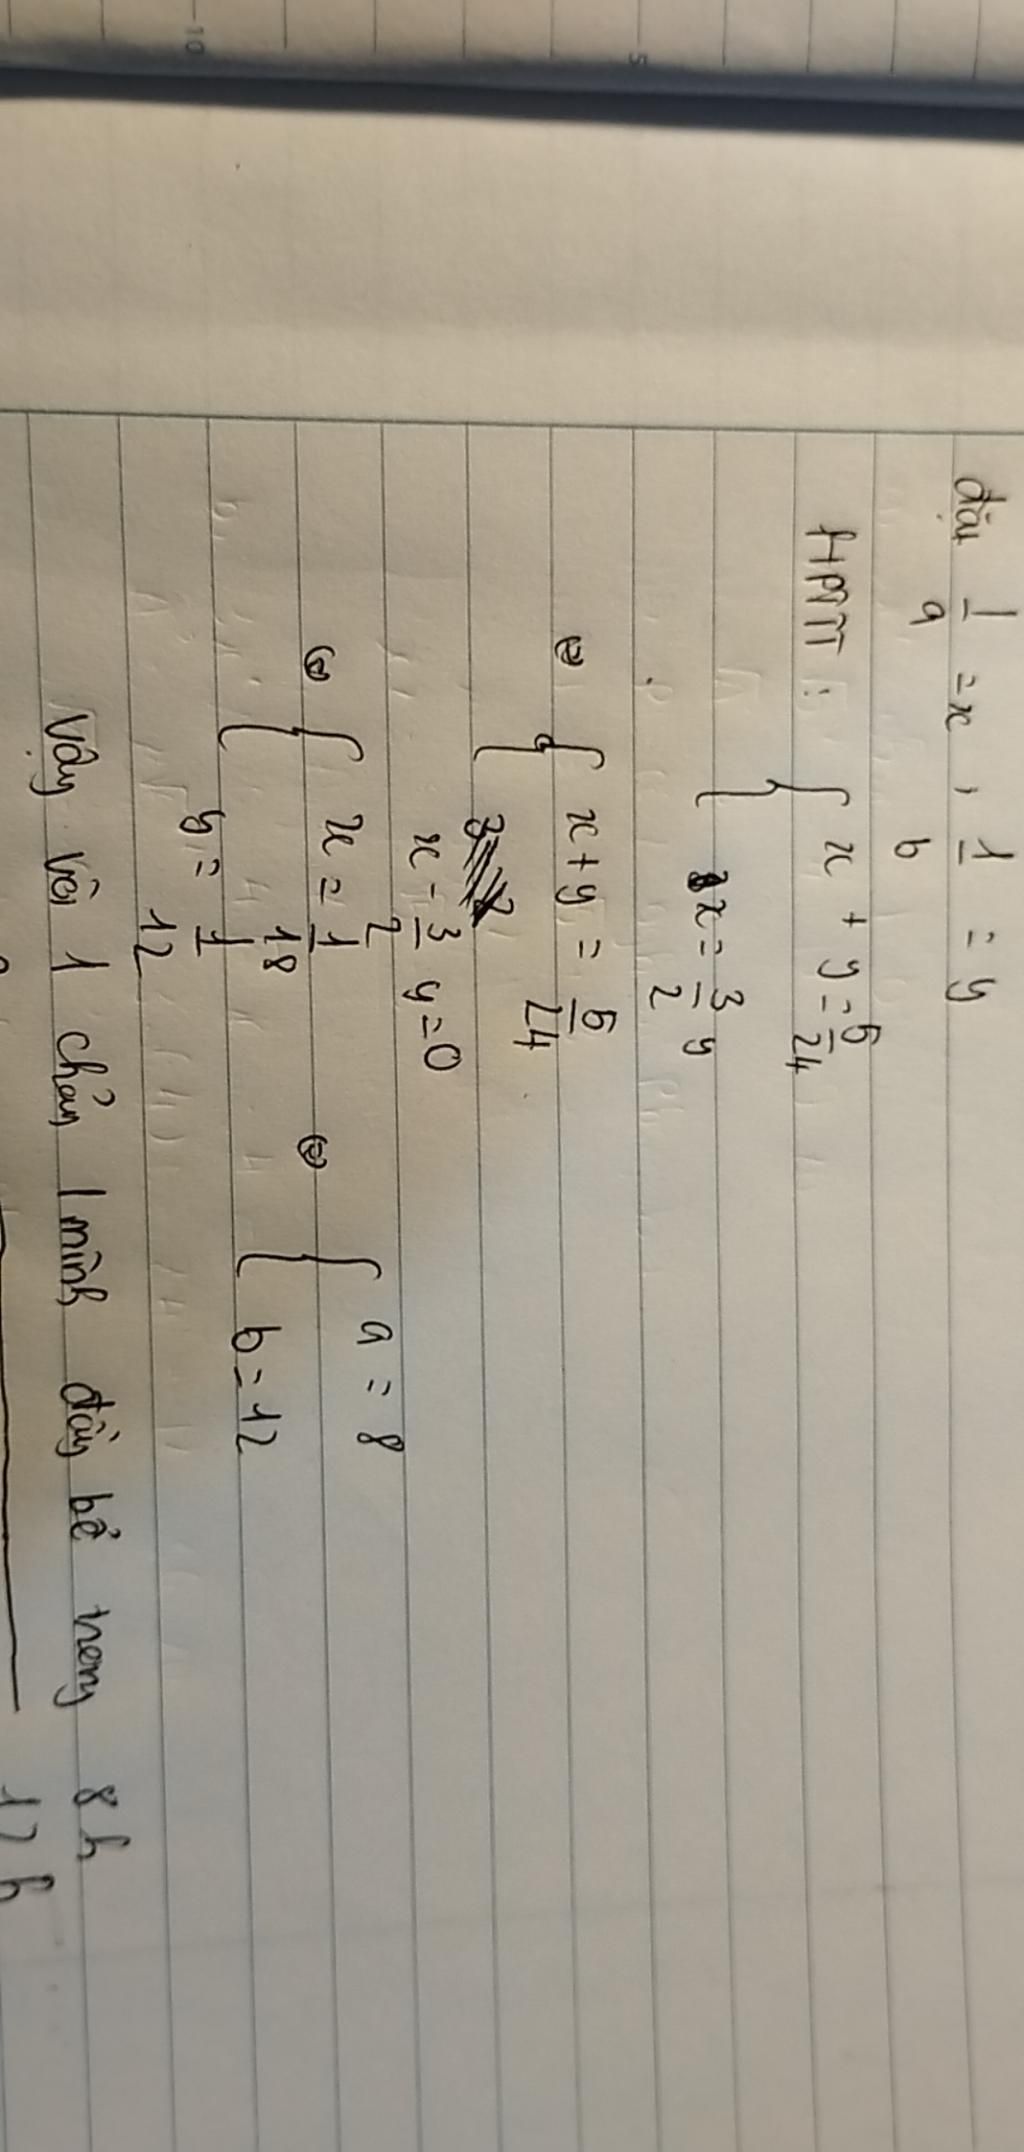 đặt 1/a = x , 1/b = y
HPTT : { x + y = 5/24
x = 3/2 y
⇔ { x + y = 5/24
x - 3/2 y = 0
⇔ { x = 1/18 ⇔ { a = 8
y = 1/12 b = 12
Vậy vòi 1 chảy 1 mình đầy bể trong 8 h
12 h